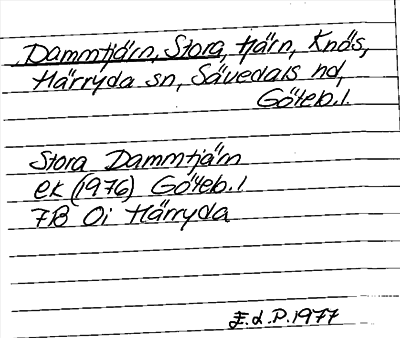 Dammtjärn, Stora, tjärn, Knös,
Härryda sn, Sävedals hd,
Göteb. l.
Stora Dammtjärn
ek (1976) Göteb. l
7B 0i Härryda
E.d.P. 1977